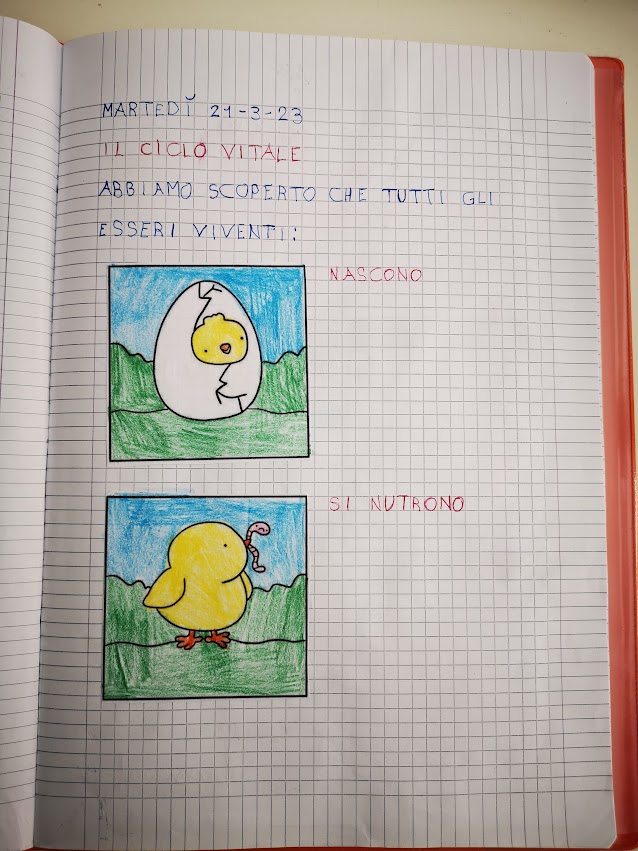 MARTEDÌ 21-3-23
IL CICLO VITALE
ABBIAMO SCOPERTO CHE TUTTI GLI
ESSERI VIVENTI:
NASCONO
SI NUTRONO